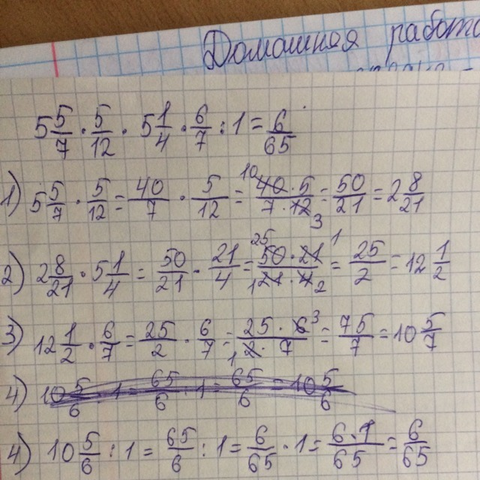 Домашняя работа
5 5/7 · 5/12 · 5 1/4 · 6/7 : 1 = 6/65
1) 5 5/7 · 5/12 = 40/7 · 5/12 = 40·5/7·12 = 50/21 = 2 8/21
2) 2 8/21 · 5 1/4 = 50/21 · 21/4 = 50·21/21·4 = 25/2 = 12 1/2
3) 12 1/2 · 6/7 = 25/2 · 6/7 = 25·6/2·7 = 75/7 = 10 5/7
4) 10 5/6 · 1 = 65/6 · 1 = 65/6 = 10 5/6
4) 10 5/6 : 1 = 65/6 : 1 = 6/65 · 1 = 6·1/65 = 6/65